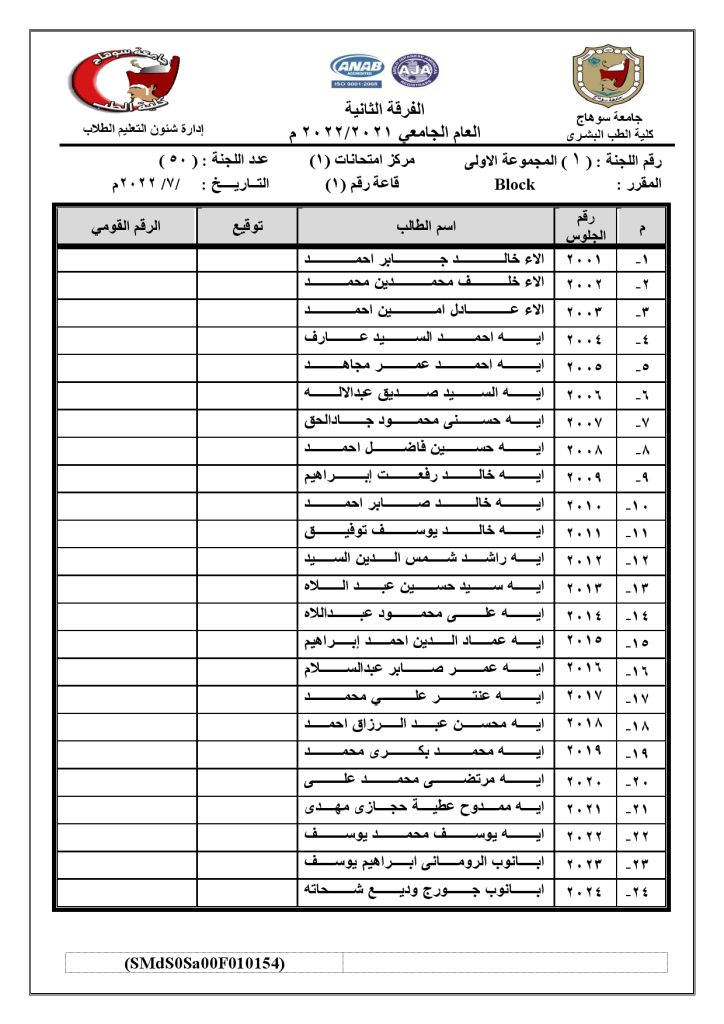 جامعة سوهاج
كلية الطب
ANAB
ACCREDITED
ISO 9001:2008
AJA
جامعة سوهاج
كلية الطب البشرى
الفرقة الثانية
العام الجامعي ٢٠٢٢/٢٠٢١ م
إدارة شئون التعليم الطلاب
رقم اللجنة : ( ١ ) المجموعة الاولى مركز امتحانات (١) عدد اللجنة : ( ٥٠ )
المقرر : Block قاعة رقم (١) التاريخ : /٧/ ٢٠٢٢م
م رقم الجلوس اسم الطالب توقيع الرقم القومي
١- ٢٠٠١ الاء خالد جابر احمد
٢- ٢٠٠٢ الاء خلف محمدين محمد
٣- ٢٠٠٣ الاء عادل امين احمد
٤- ٢٠٠٤ ايه احمد السيد عارف
٥- ٢٠٠٥ ايه احمد عمر مجاهد
٦- ٢٠٠٦ ايه السيد صديق عبدالاله
٧- ٢٠٠٧ ايه حسنى محمود جادالحق
٨- ٢٠٠٨ ايه حسين فاضل احمد
٩- ٢٠٠٩ ايه خالد رفعت إبراهيم
١٠- ٢٠١٠ ايه خالد صابر احمد
١١- ٢٠١١ ايه خالد يوسف توفيق
١٢- ٢٠١٢ ايه راشد شمس الدين السيد
١٣- ٢٠١٣ ايه سيد حسين عبد اللاه
١٤- ٢٠١٤ ايه على محمود عبداللاه
١٥- ٢٠١٥ ايه عماد الدين احمد إبراهيم
١٦- ٢٠١٦ ايه عمر صابر عبدالسلام
١٧- ٢٠١٧ ايه عنتر علي محمد
١٨- ٢٠١٨ ايه محسن عبد الرزاق احمد
١٩- ٢٠١٩ ايه محمد بكرى محمد
٢٠- ٢٠٢٠ ايه مرتضى محمد على
٢١- ٢٠٢١ ايه ممدوح عطية حجازى مهدى
٢٢- ٢٠٢٢ ايه يوسف محمد يوسف
٢٣- ٢٠٢٣ ابانوب الرومانى ابراهيم يوسف
٢٤- ٢٠٢٤ ابانوب جورج وديع شحاته
(SMdS0Sa00F010154)